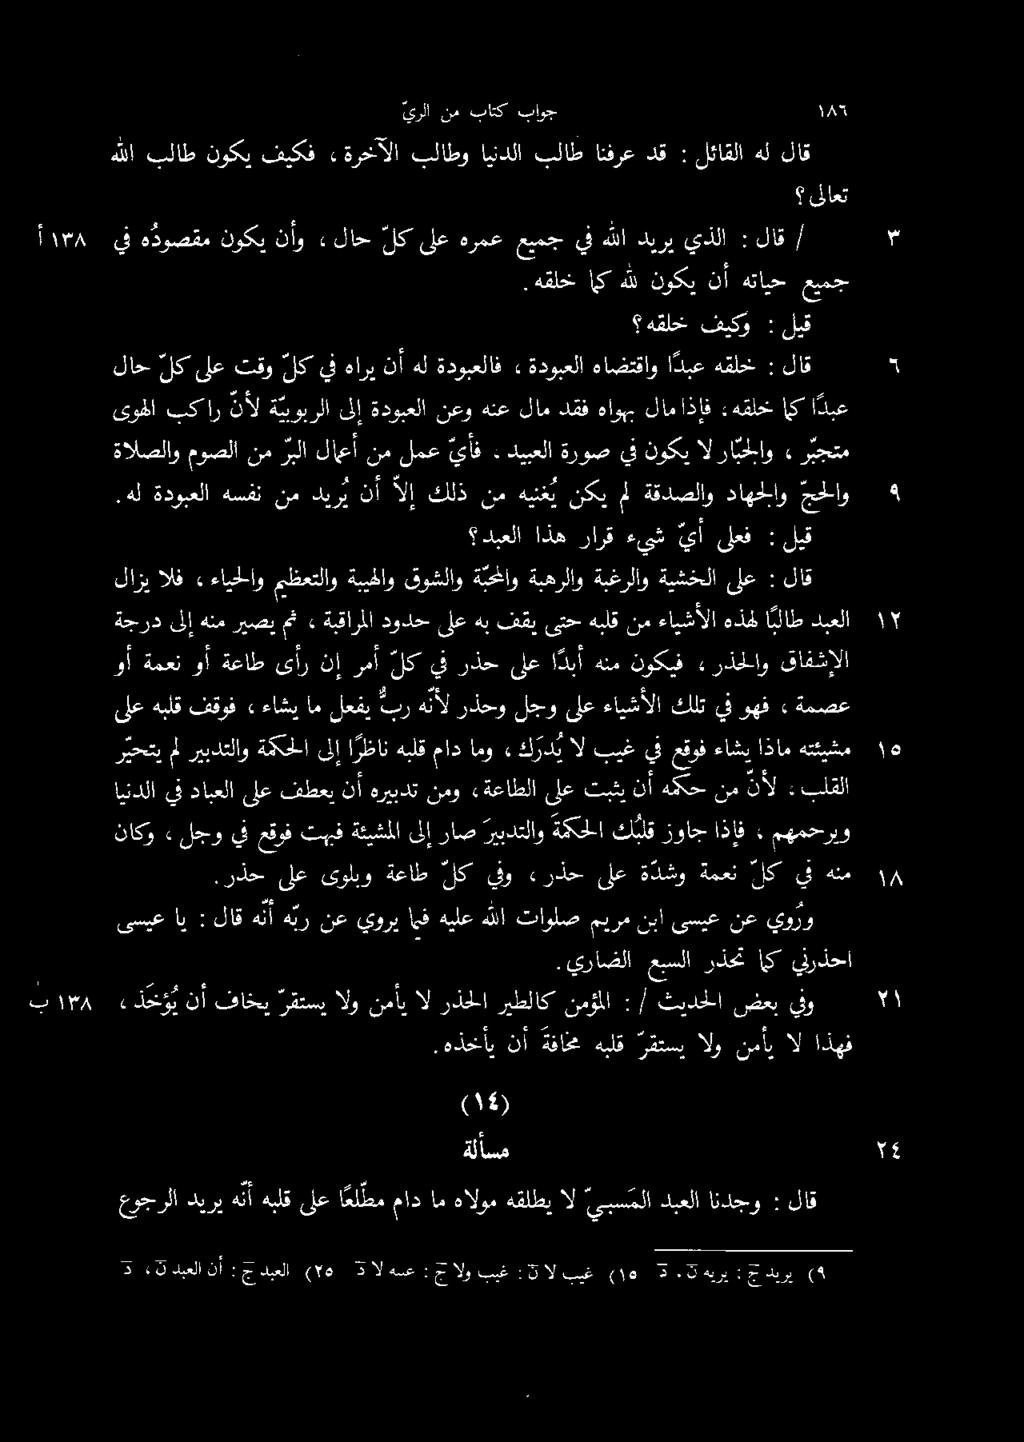 ١٨٦ جواب كتاب من الريّ
قال له القائل : قد عرفنا طالب الدنيا وطالب الآخرة ، فكيف يكون طالب الله
تعالى ؟
٣ / قال : الذي يريد الله في جميع عمره على كلّ حال ، وأن يكون مقصودُه في ١٣٨ أ
جميع حياته أن يكون لله كما خلقه .
قيل : وكيف خلقه ؟
٦ قال : خلقه عبدًا واقتضاه العبودة ، فالعبودة له أن يراه في كلّ وقت على كلّ حال
عبدًا كما خلقه ، فإذا مال بهواه فقد مال عنه وعن العبودة إلى الربوبيّة لأنّ راكب الهوى
متجبّر ، والجبّار لا يكون في صورة العبيد . فأيّ عمل من أعمال البرّ من الصوم والصلاة
٩ والحجّ والجهاد والصدقة لم يكن يُغنيه من ذلك إلاّ أن يُريد من نفسه العبودة له .
قيل : فعلى أيّ شيء قرار هذا العبد ؟
قال : على الخشية والرغبة والرهبة والمحبّة والشوق والهيبة والتعظيم والحياء ، فلا يزال
١٢ العبد طالبًا لهذه الأشياء من قلبه حتى يقف به على حدود المراقبة ، ثم يصير منه إلى درجة
الإشفاق والحذر ، فيكون منه أبدًا على حذر في كلّ أمر إن رأى طاعة أو نعمة أو
عصمة ، فهو في تلك الأشياء على وجل وحذر لأنّه ربٌّ يفعل ما يشاء ، فوقف قلبه على
١٥ مشيئته ماذا يشاء فوقع في غيب لا يُدرَك ، وما دام قلبه ناظرًا إلى الحكمة والتدبير لم يتحيّر
القلب . لأنّ من حكمه أن يثبت على الطاعة ، ومن تدبيره أن يعطف على العباد في الدنيا
ويرحمهم ، فإذا جاوز قلبُك الحكمةَ والتدبيرَ صار إلى المشيئة فبهت فوقع في وجل ، وكان
١٨ منه في كلّ نعمة وشدّة على حذر ، وفي كلّ طاعة وبلوى على حذر .
ورُوي عن عيسى ابن مريم صلوات الله عليه فيما يروي عن ربّه أنّه قال : يا عيسى
احذرني كما تحذر السبع الضاري .
٢١ وفي بعض الحديث / : المؤمن كالطير الحذر لا يأمن ولا يستقرّ يخاف أن يُؤخَذ ، ١٣٨ ب
فهذا لا يأمن ولا يستقرّ قلبه مخافةَ أن يأخذه .
(١٤)
٢٤ مسألة
قال : وجدنا العبد المَسبيّ لا يطلقه مولاه ما دام مطّلعًا على قلبه أنّه يريد الرجوع
٩) يريد ج : يريه ن ، د ١٥) غيب لا ن : غيب ولا ج : عسه لا د ٢٥) العبد ج : أن العبد ن ، د